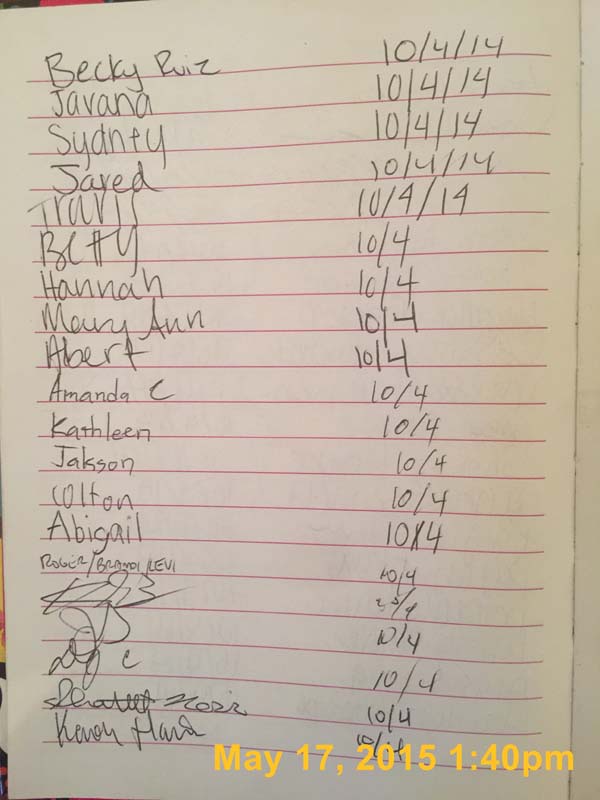 Becky Ruiz 10/4/14
Javana 10/4/14
Sydney 10/4/14
Jared 10/4/14
Travis 10/4/14
Betty 10/4
Hannah 10/4
Mary Ann 10/4
Abert 10/4
Amanda C 10/4
Kathleen 10/4
Jakson 10/4
Colton 10/4
Abigail 10/4
ROGER/BRANDI/LEVI 10/4
10/4
C 10/4
10/4
10/4
May 17, 2015 1:40pm